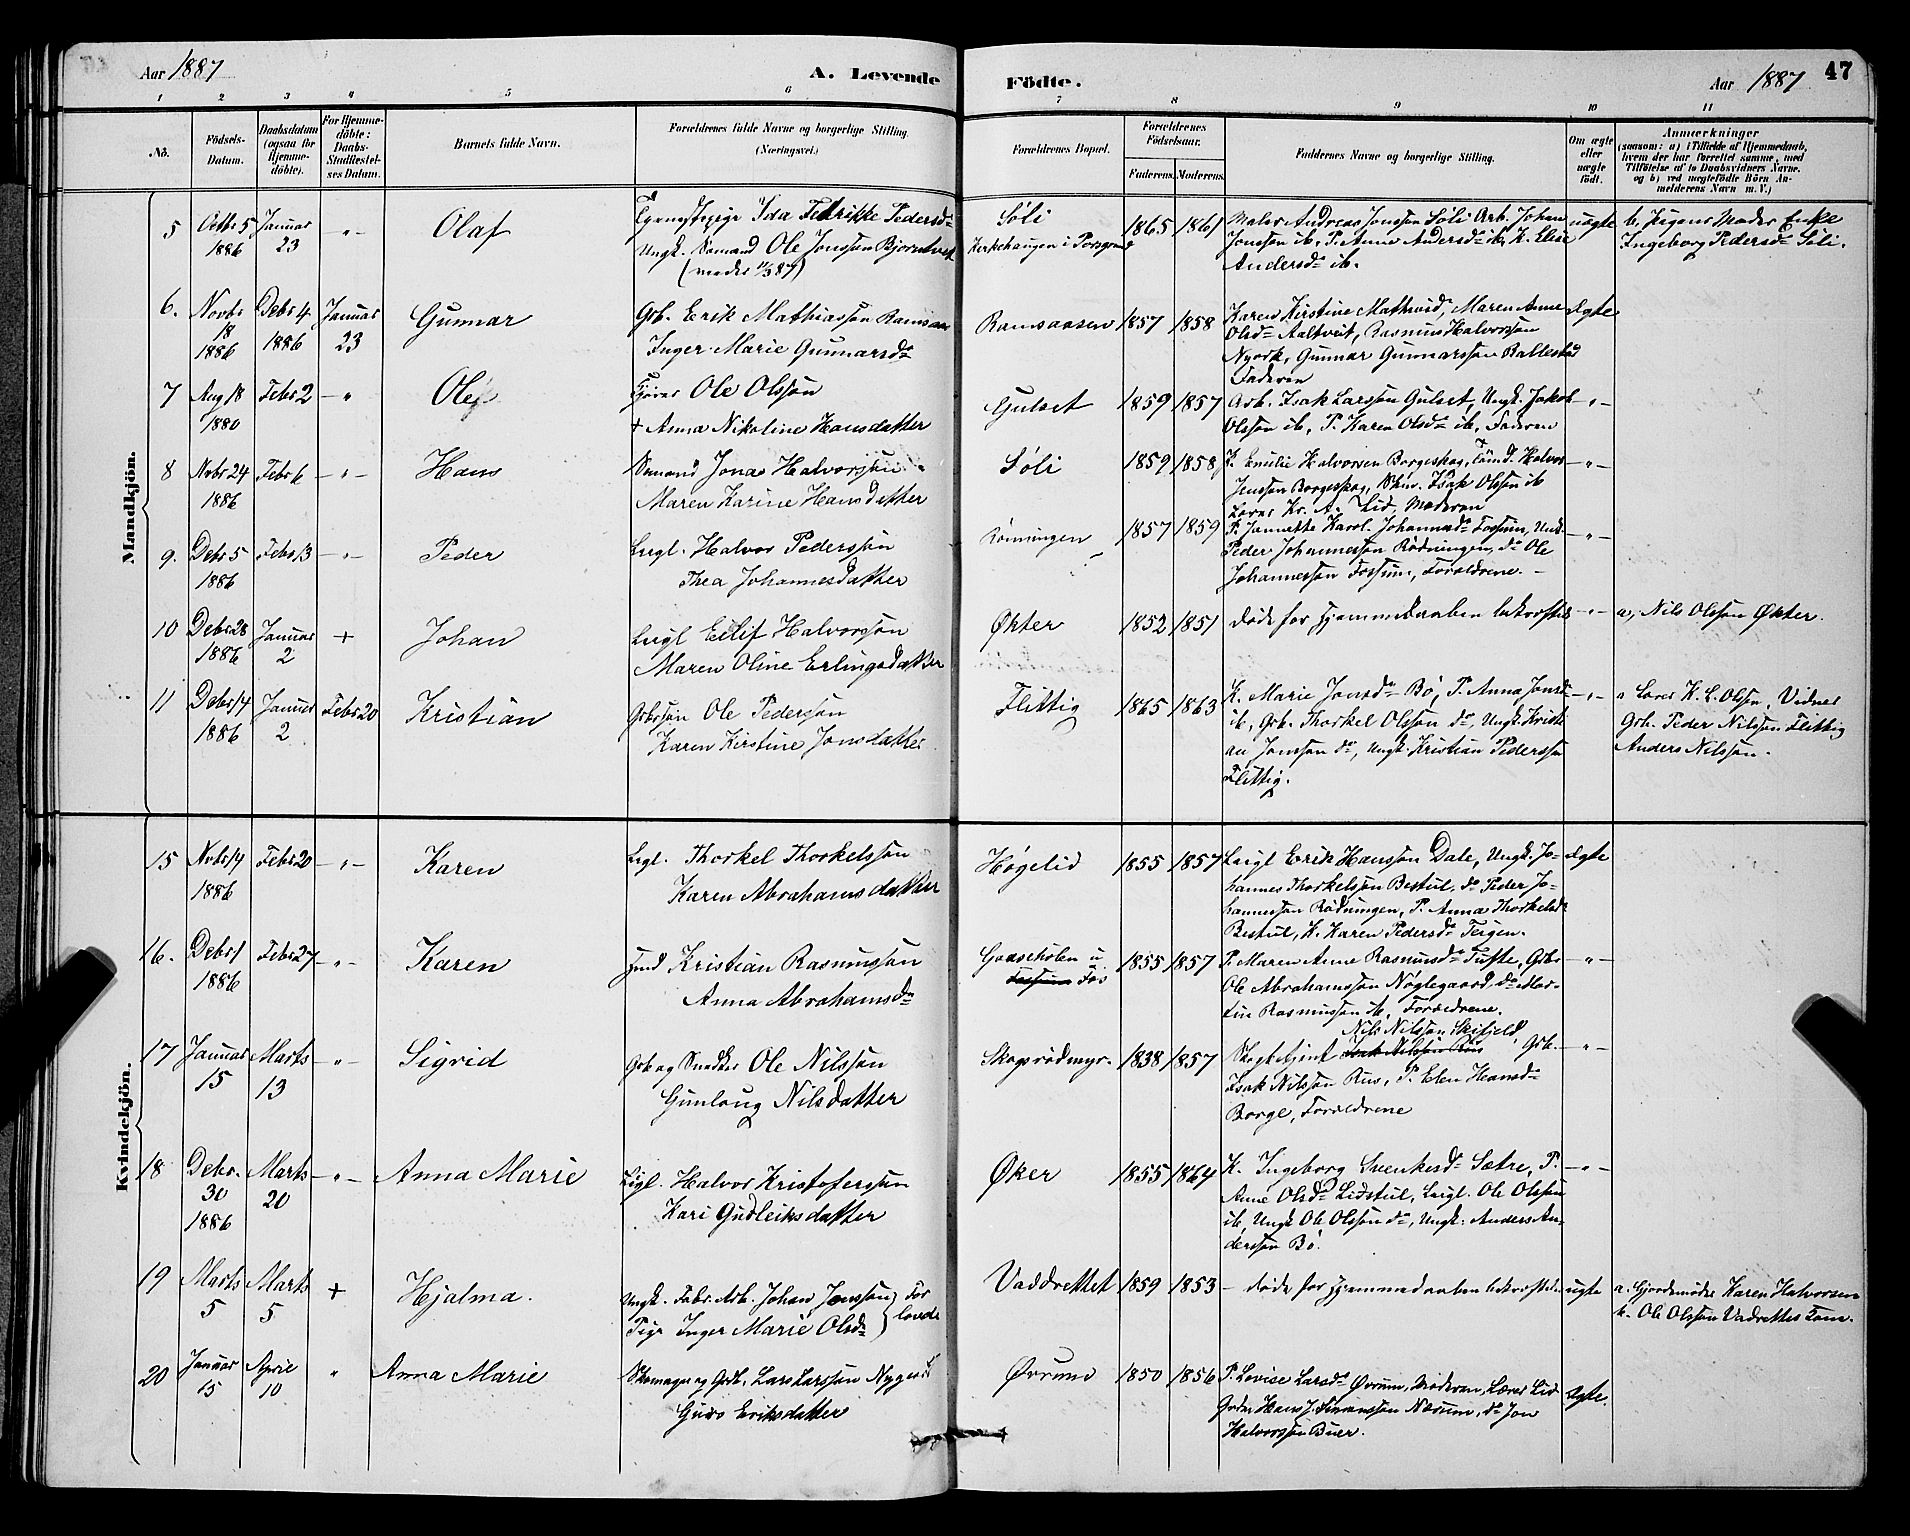 Aar 1887
A. Levende
Födte.
Aar 1887
47
1 2 3 4 5 6 7 8 9 10 11
No.
Födsels-
Datum.
Daabsdatum
(ogsaa for
Hjemme-
döbte).
For Hjemme-
döbte:
Daabs-
Stadfæstel-
ses Datum.
Barnets fulde Navn.
Forældrenes fulde Navne og borgerlige Stilling.
(Næringsvei.)
Forældrenes Bopæl.
Forældrenes
Födselsaar.
Faderens. Moderens.
Faddernes Navne og borgerlige Stilling.
Om ægte
eller
uægte
födt.
Anmærkninger
(saasom: a) i Tilfælde af Hjemmedaab,
hvem der har forrettet samme, med
Tilföielse af to Daabsvidners Navne,
og b) ved uægtefödte Börn An-
melderens Navn m. V.)
Mandkjön.
5
1886
Januar
23
- " -
Olaf
Ida Fredrikke Pedersd.
Ungk. Sømand Ole Jonsson Bjørntvedt
Søli
Kirkehaugen i Porsgrund
1865 1861
Maler Andreas Jonsson Søli Arb. Johan
Jonsson ib, P. Anne Andersd. ib, K. Elise
Andersd. ib.
uægte
b, Pigens Moder Enke
Ingeborg Pedersd. Søli.
6.
Novbr
18
1886
Debr 4
1886
Januar
23
Gunnar
Grb. Erik Mathiasson Ramsaas
Inger Marie Gunnarsd.
Ramsaasen
1857 1858
Karen Kirstine Mathisd, Maren Anne
Olsd. Aaltveit, Rasmus Halvorsson
Nyork, Gunnar Gunnarsson Ballestad
Faderen
Ægte
7
Aug 18
1880
Febr 2
- " -
Ole
Ole Olsson
+ Anna Nikoline Hansdatter
Gulset
1859 1857
Arb. Isak Larsson Gulset, Ungk. Jakob
Olsson ib, P. Karen Olsd. ib, Faderen
- " -
8
Novbr 24
1886
Febr 6
- " -
Hans
Sømand Jonas Halvorsson
Maren Karine Hansdatter
Søli
1859 1858
K. Emilie Halvorsen Borgeskog, Tømd. Halvor
Jensson Borgeskog, Skm. Isak Olsson ib
Lærer Kr. A. Lid, Moderen
- " -
9.
Debr 5
1886
Febr 13
- " -
Peder
Leigl. Halvor Pedersson
Thea Johannesdatter
Rønningen
1857 1859
P. Jannette Karol. Johannesd. Fossum, Ungk.
Peder Johannesson Rødningen, do Ole
Johannesson Fossum, Forældrene.
- " -
10
Debr 28
1886
Januar
2
+
Johan
Leigl Eilif Halvorsson
Maren Oline Erlingsdatter
Økter
1852 1851
døde før Hjemmedaaben bekræftedes
- " -
a, Nils Olsson Økter.
11
Debr 14
1886
Januar
2
Febr 20
Kristian
Grbrsøn Ole Pedersson
Karen Kirstine Jonsdatter
Flittig
1865 1863
K. Marie Jonsd. Bö, P. Anna Jonsd.
ib, Grb. Thorkel Olsson do, Ungk. Kristi-
an Jonsson do, Ungk. Kristian Pedersson
Flittig.
- " -
a Lærer K. L. Olsen, Vidner
Grb. Peder Nilsson Flittig
Anders Nilsson.
Kvindekjön.
15
Novbr 14
1886
Febr 20
- " -
Karen
Leigl. Thorkel Thorkelsson
Karen Abrahamsdatter
Høgelid
1855 1857
Leigl Erik Hansson Dale, Ungk. Jo-
hannes Thorkelsson Bestul, do Peder Jo-
hannesson Rødningen, P. Anna Thorkelsd.
Bestul, K. Karen Pedersd. Teigen.
Ægte
16.
Debr 1
1886
Febr 27
- " -
Karen
Kristian Rasmusson
Anna Abrahamsd.
Gaaseholen u
Fossum Fos
1855 1857
P. Maren Anne Rasmusd. Tufte, Grb.
Ole Abrahamsson Nøglegaard, do Mar-
tin Rasmusson ib, Forældrene.
- " -
17
Januar
15
Marts
13
- " -
Sigrid
Grb og Snedker Ole Nilsson
Gunloug Nilsdatter
Skogsrødmyr.
1838 1857
Nils Nilsson Skifjeld,
Skogbetjent Isak Nilsson Rus Grb.
Isak Nilsson Rus, P. Elen Hansd.
Borge, Forældrene
- " -
18
Debr.
30
1886
Marts
20
- " -
Anna Marie
Ligl. Halvor Kristofersson
Kari Gudleiksdatter
Øker
1855 1864
K. Ingeborg Svenkesd. Sætre, P.
Anne Olsd. Lidstul, Leigl. Ole Olsson
ib, Ungk Ole Olsson do, Ungk. Anders An-
dersson Bö.
- " -
19
Marts
5
Marts
5
+
Hjalma.
Ungk. Fabr. Arb. Johan Jonsson } For
Pige Inger Marie Olsd. } lovede
Vaddrettet
1859 1853
- døde før Hjemmedaaben bekræftedes
uægte
a. Gjordemoder Karen Halvorsen
b. Ole Olsson Vadrettet
20
Januar
15
April
10
"
Anna Marie
Skomager og Grdb. Lars Larsson Nygaard
Guro Eriksdatter
Øvrum
1850 1856
P. Lovise Larsd. Øvrum, Moderen, Lærer Lid
Grdbr Hans J. Simonsson Nærum, do Jon
Halvorsson Buer.
Ægte.